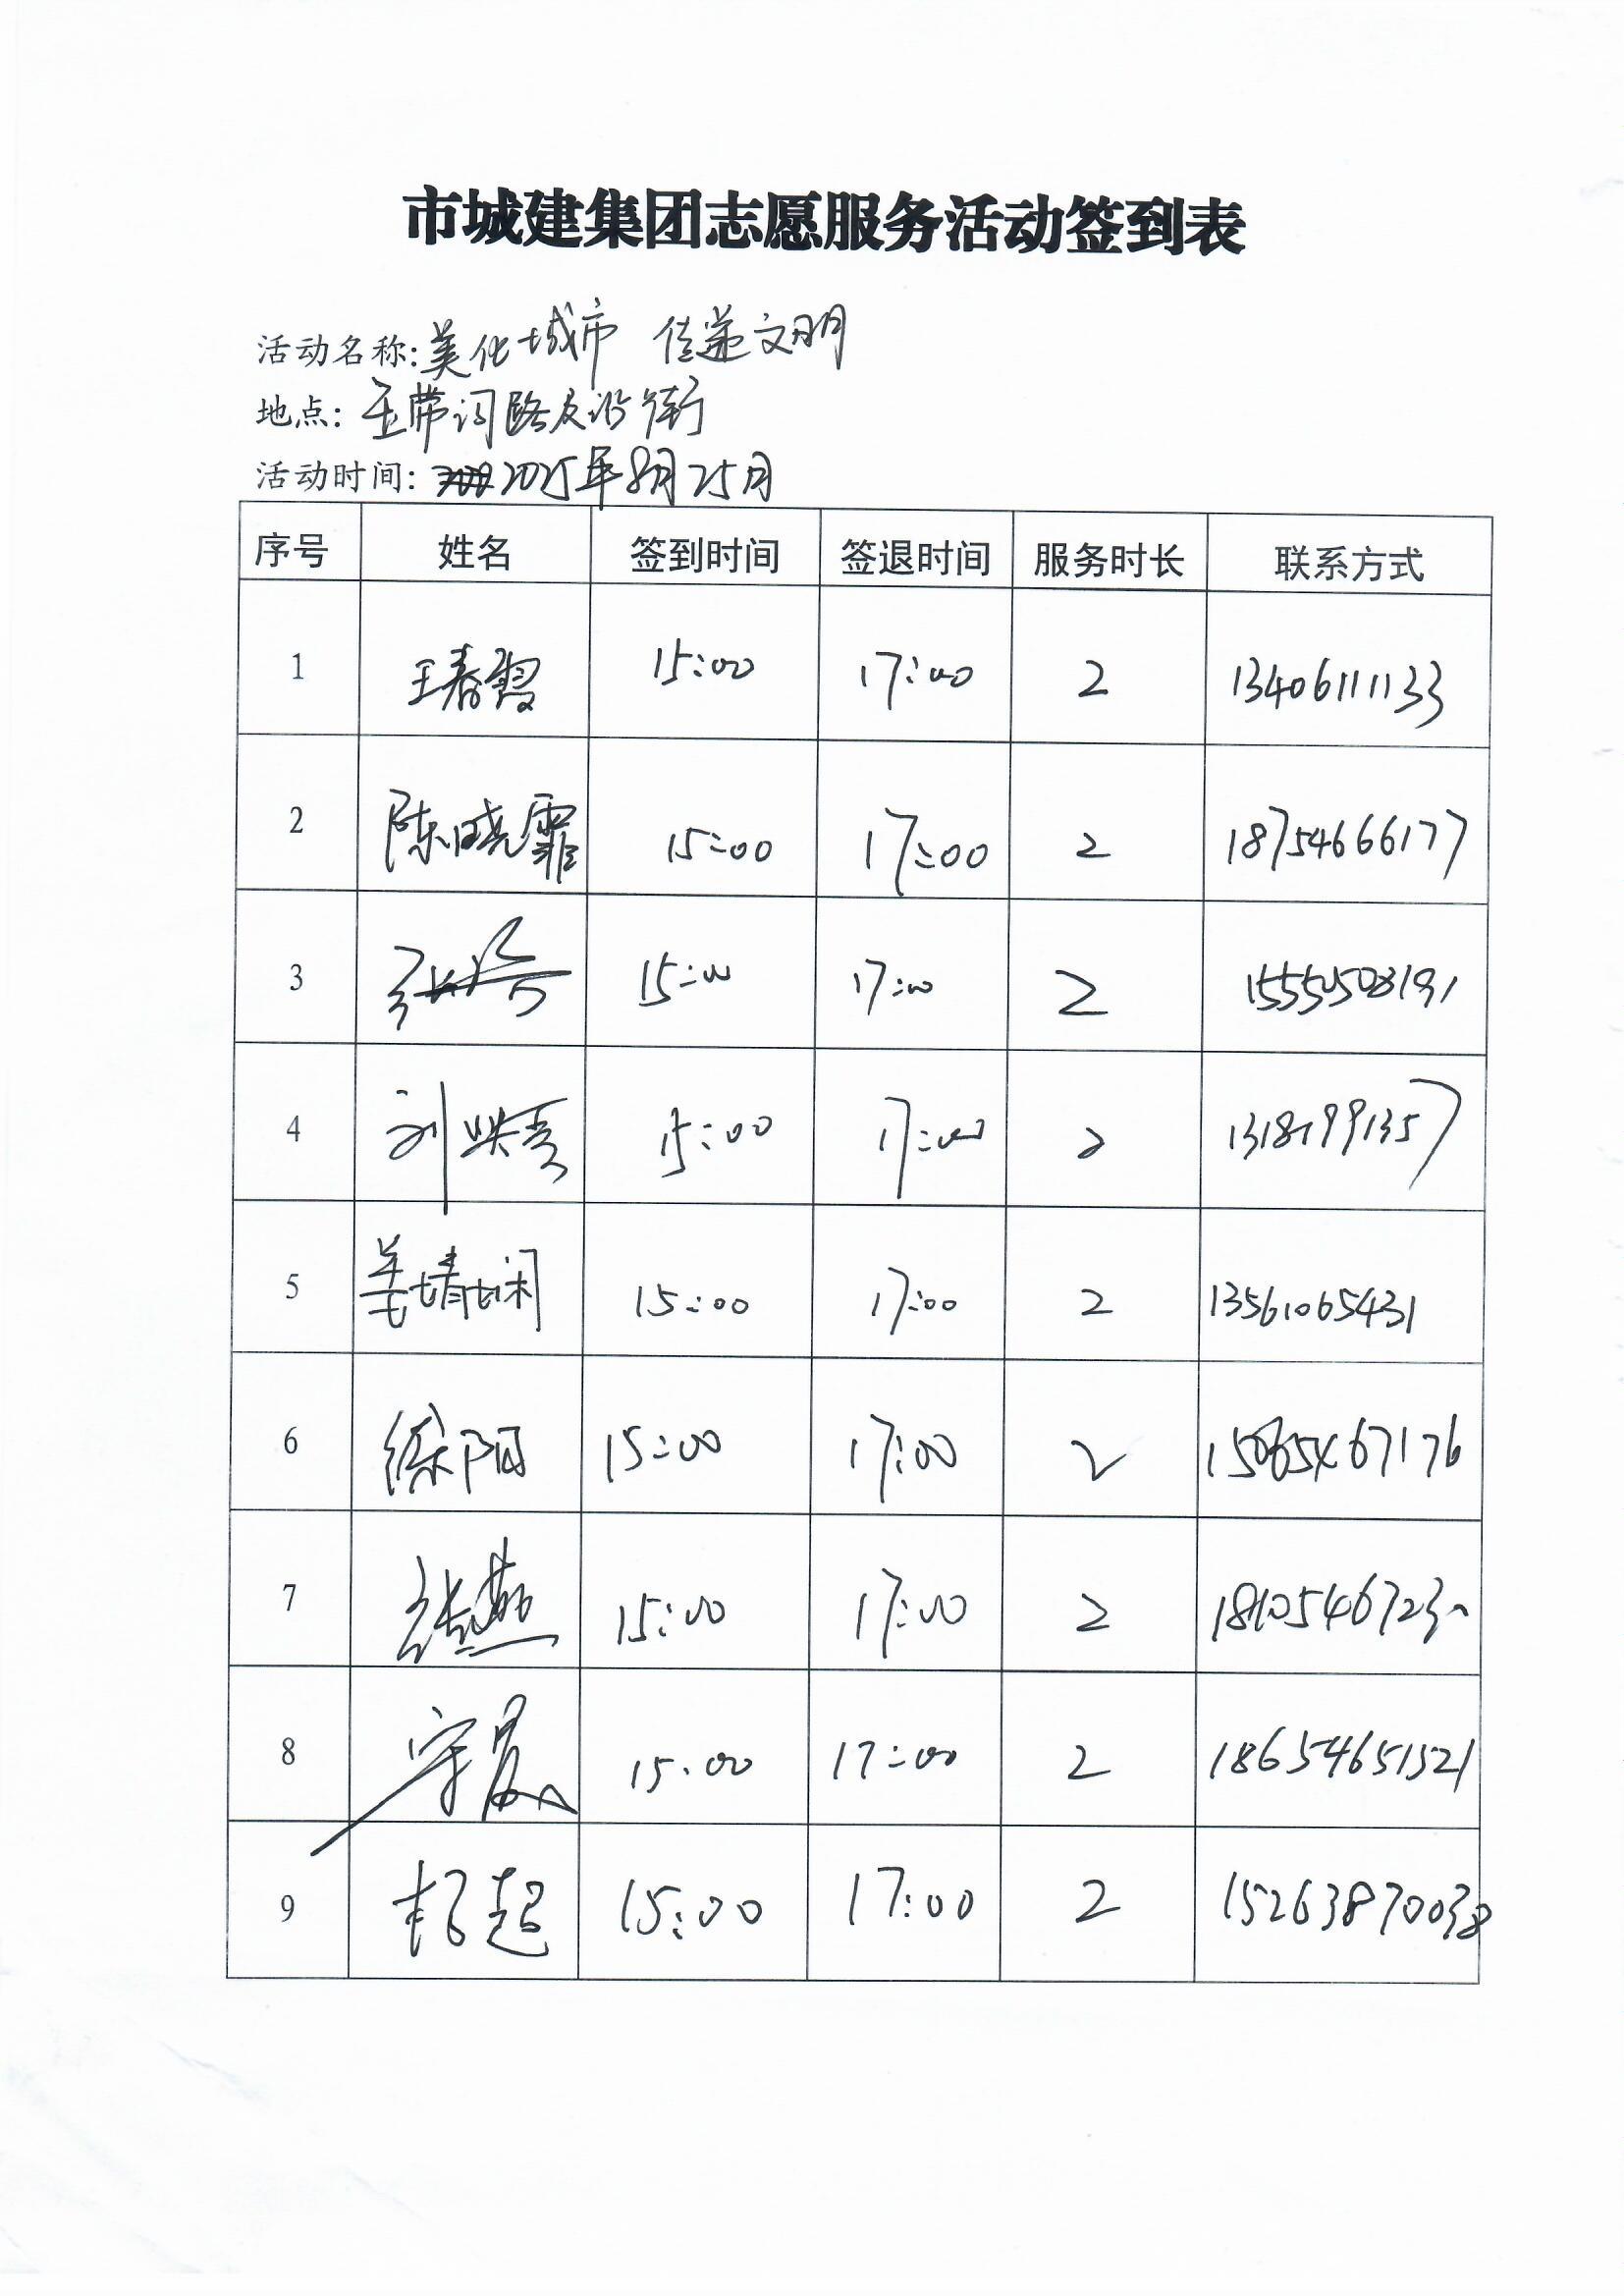 市城建集团志愿服务活动签到表
活动名称:美化城市 传递文明
地点:玉带河路及沿街
活动时间: 2025年8月25日
序号 姓名 签到时间 签退时间 服务时长 联系方式
1 王春霞 15:00 17:00 2 13406111133
2 陈晓霏 15:00 17:00 2 18754666177
3 15:00 17:00 2 15550508191
4 15:00 17:00 2
5 姜婧娴 15:00 17:00 2 13561065431
6 徐阳 15:00 17:00 2
7 张燕 15:00 17:00 2
8 15:00 17:00 2 18654651521
9 杨超 15:00 17:00 2 15263870038